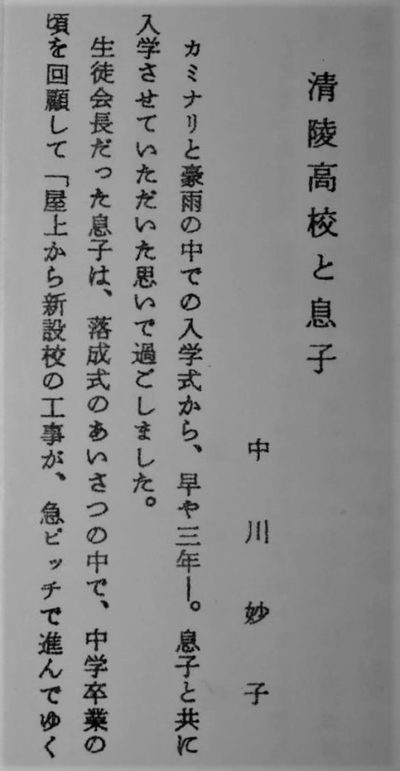 清陵高校と息子
中川妙子
カミナリと豪雨の中での入学式から、早や三年―。息子と共に
入学させていただいた思いで過ごしました。
生徒会長だった息子は、落成式のあいさつの中で、中学卒業の
頃を回顧して「屋上から新設校の工事が、急ピッチで進んでゆく